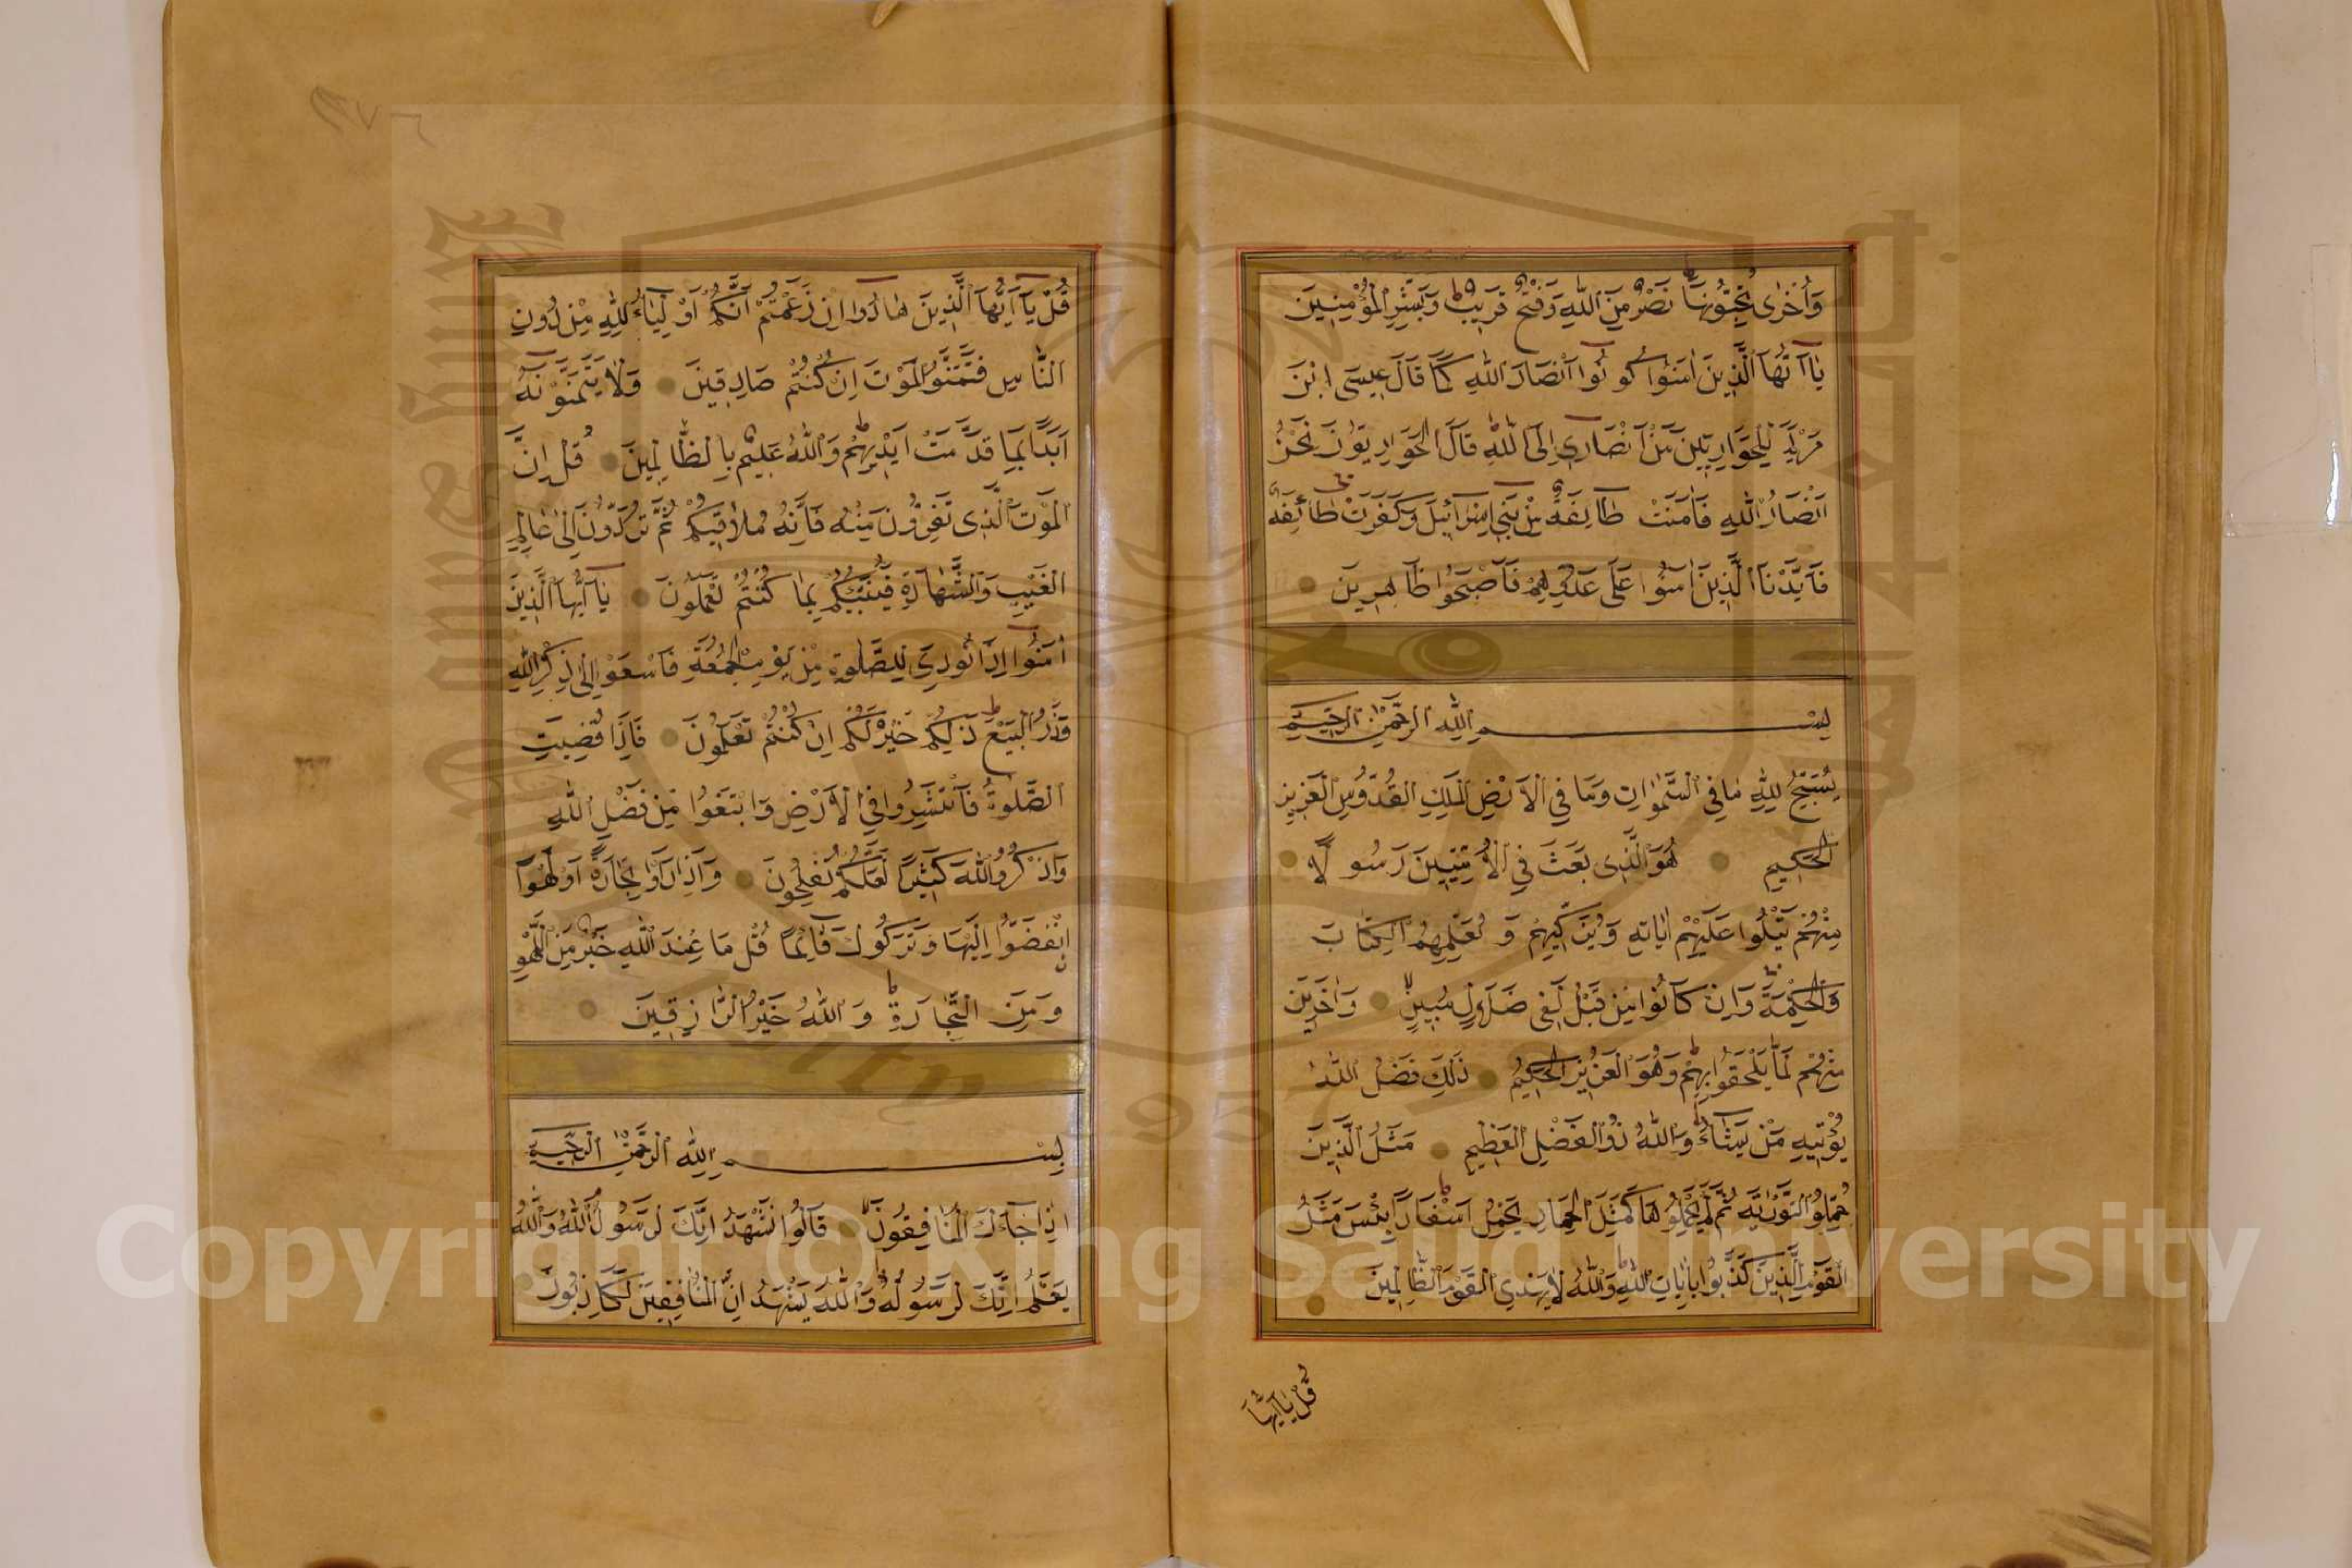 وَأُخْرٰى تُحِبُّونَهَا نَصْرٌ مِنَ اللّٰهِ وَفَتْحٌ قَرِيبٌ وَبَشِّرِ الْمُؤْمِنِينَ
يَا أَيُّهَا الَّذِينَ اٰمَنُوا كُونُوا أَنْصَارَ اللّٰهِ كَمَا قَالَ عِيسَى ابْنَ
مَرْيَمَ لِلْحَوَارِيِّينَ مَنْ أَنْصَارِي إِلَى اللّٰهِ قَالَ الْحَوَارِيُّونَ نَحْنُ
أَنْصَارُ اللّٰهِ فَاٰمَنَتْ طَائِفَةٌ مِنْ بَنِي إِسْرَائِيلَ وَكَفَرَتْ طَائِفَةٌ
فَأَيَّدْنَا الَّذِينَ اٰمَنُوا عَلَى عَدُوِّهِمْ فَأَصْبَحُوا ظَاهِرِينَ
بِسْمِ اللّٰهِ الرَّحْمٰنِ الرَّحِيمِ
يُسَبِّحُ لِلّٰهِ مَا فِي السَّمٰوَاتِ وَمَا فِي الْأَرْضِ الْمَلِكِ الْقُدُّوسِ الْعَزِيزِ
الْحَكِيمِ هُوَ الَّذِى بَعَثَ فِي الْأُمِّيِّينَ رَسُولًا
مِنْهُمْ يَتْلُوا عَلَيْهِمْ اٰيَاتِهِ وَيُزَكِّيهِمْ وَيُعَلِّمُهُمُ الْكِتَابَ
وَالْحِكْمَةَ وَإِنْ كَانُوا مِنْ قَبْلُ لَفِى ضَلَالٍ مُبِينٍ وَاٰخَرِينَ
مِنْهُمْ لَمَّا يَلْحَقُوا بِهِمْ وَهُوَ الْعَزِيزُ الْحَكِيمُ ذٰلِكَ فَضْلُ اللّٰهِ
يُؤْتِيهِ مَنْ يَشَاءُ وَاللّٰهُ ذُو الْفَضْلِ الْعَظِيمِ مَثَلُ الَّذِينَ
حُمِّلُوا التَّوْرٰيةَ ثُمَّ لَمْ يَحْمِلُوهَا كَمَثَلِ الْحِمَارِ يَحْمِلُ أَسْفَارًا بِئْسَ مَثَلُ
الْقَوْمِ الَّذِينَ كَذَّبُوا بِاٰيَاتِ اللّٰهِ وَاللّٰهُ لَا يَهْدِي الْقَوْمَ الظَّالِمِينَ
قُلْ يَا أَيُّهَا
قُلْ يَا أَيُّهَا الَّذِينَ هَادُوا إِنْ زَعَمْتُمْ أَنَّكُمْ أَوْلِيَاءُ لِلّٰهِ مِنْ دُونِ
النَّاسِ فَتَمَنَّوُا الْمَوْتَ إِنْ كُنْتُمْ صَادِقِينَ وَلَا يَتَمَنَّوْنَهُ
أَبَدًا بِمَا قَدَّمَتْ أَيْدِيهِمْ وَاللّٰهُ عَلِيمٌ بِالظَّالِمِينَ قُلْ إِنَّ
الْمَوْتَ الَّذِى تَفِرُّونَ مِنْهُ فَإِنَّهُ مُلَاقِيكُمْ ثُمَّ تُرَدُّونَ إِلَى عَالِمِ
الْغَيْبِ وَالشَّهَادَةِ فَيُنَبِّئُكُمْ بِمَا كُنْتُمْ تَعْمَلُونَ يَا أَيُّهَا الَّذِينَ
اٰمَنُوا إِذَا نُودِيَ لِلصَّلٰوةِ مِنْ يَوْمِ الْجُمُعَةِ فَاسْعَوْا إِلَى ذِكْرِ اللّٰهِ
وَذَرُوا الْبَيْعَ ذٰلِكُمْ خَيْرٌ لَكُمْ إِنْ كُنْتُمْ تَعْلَمُونَ فَإِذَا قُضِيَتِ
الصَّلٰوةُ فَانْتَشِرُوا فِي الْأَرْضِ وَابْتَغُوا مِنْ فَضْلِ اللّٰهِ
وَاذْكُرُوا اللّٰهَ كَثِيرًا لَعَلَّكُمْ تُفْلِحُونَ وَإِذَا رَأَوْا تِجَارَةً أَوْ لَهْوًا
انْفَضُّوا إِلَيْهَا وَتَرَكُوكَ قَائِمًا قُلْ مَا عِنْدَ اللّٰهِ خَيْرٌ مِنَ اللَّهْوِ
وَمِنَ التِّجَارَةِ وَاللّٰهُ خَيْرُ الرَّازِقِينَ
بِسْمِ اللّٰهِ الرَّحْمٰنِ الرَّحِيمِ
إِذَا جَاءَكَ الْمُنَافِقُونَ قَالُوا نَشْهَدُ إِنَّكَ لَرَسُولُ اللّٰهِ وَاللّٰهُ
يَعْلَمُ إِنَّكَ لَرَسُولُهُ وَاللّٰهُ يَشْهَدُ إِنَّ الْمُنَافِقِينَ لَكَاذِبُونَ
Copyright © King Saud University